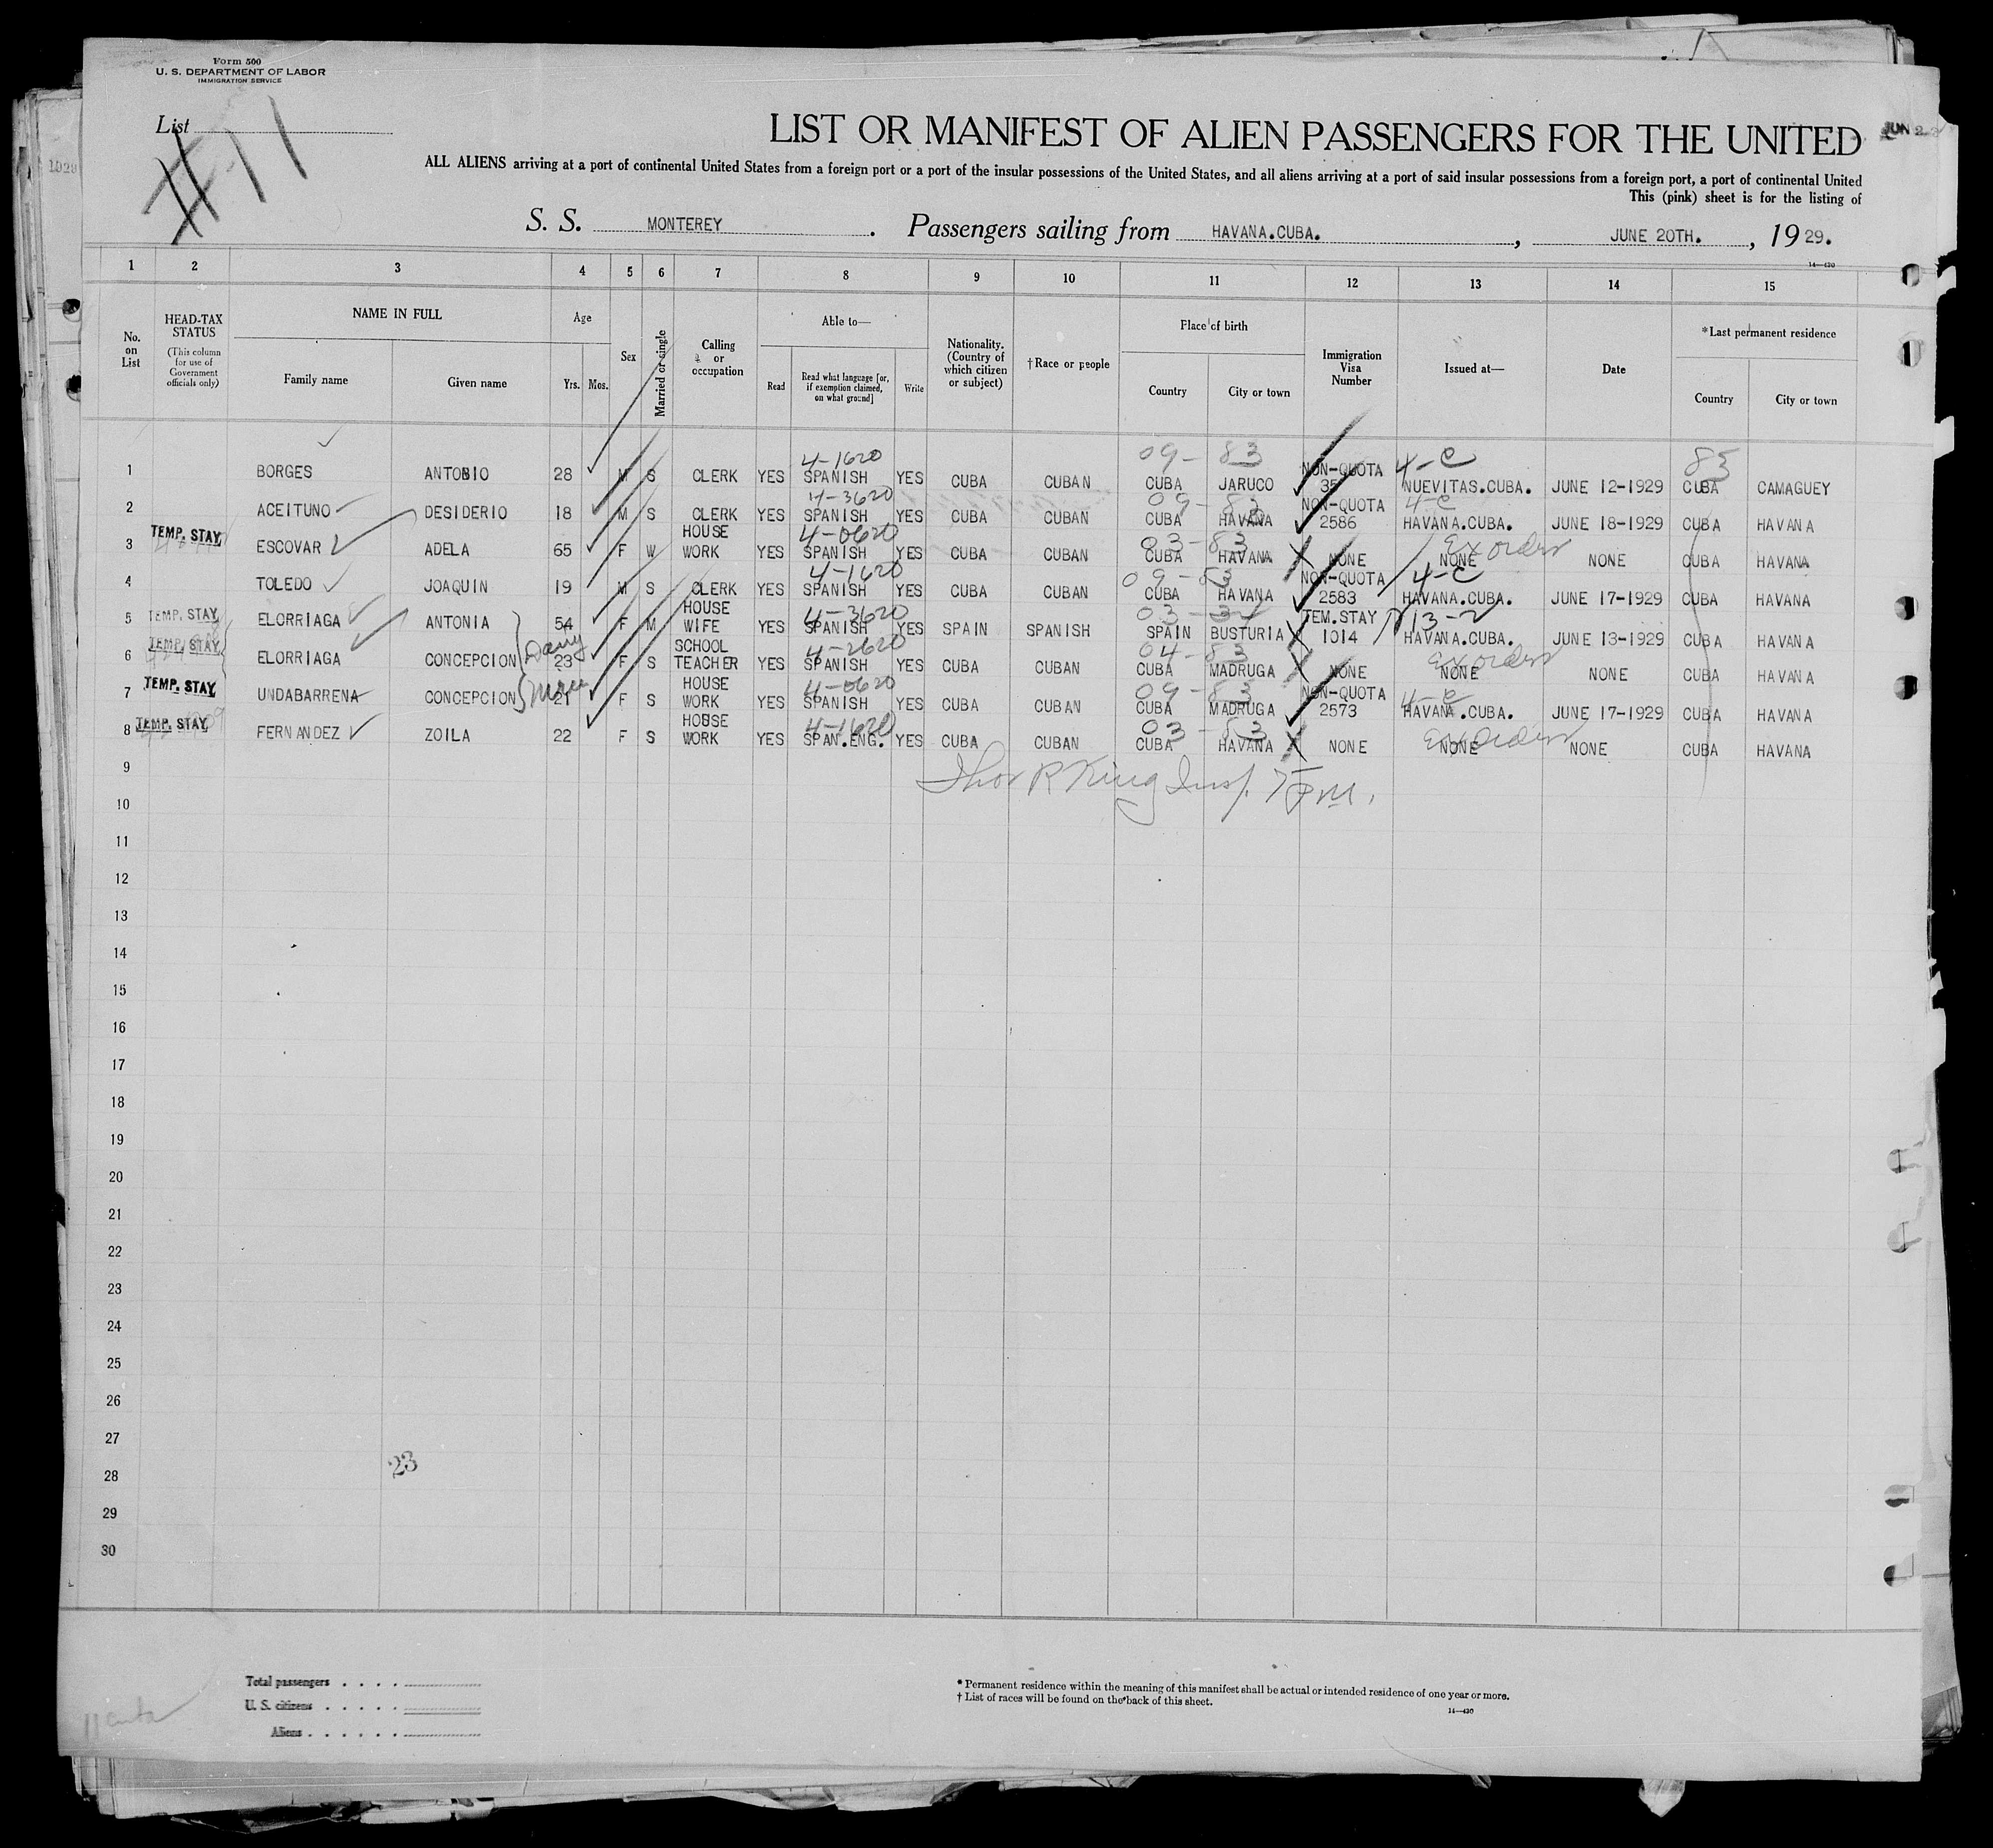 Form 500
U. S. DEPARTMENT OF LABOR
IMMIGRATION SERVICE
List
#11
LIST OR MANIFEST OF ALIEN PASSENGERS FOR THE UNITED
JUN 22
1929
ALL ALIENS arriving at a port of continental United States from a foreign port or a port of the insular possessions of the United States, and all aliens arriving at a port of said insular possessions from a foreign port, a port of continental United
This (pink) sheet is for the listing of
S. S. MONTEREY. Passengers sailing from HAVANA.CUBA., JUNE 20TH., 1929.
14—430
1 2 3 4 5 6 7 8 9 10 11 12 13 14 15
No. on List
HEAD-TAX STATUS (This column for use of Government officials only)
NAME IN FULL
Family name Given name
Age
Yrs. Mos.
Sex
Married or single
Calling or occupation
Able to—
Read Read what language [or, if exemption claimed, on what ground] Write
Nationality. (Country of which citizen or subject)
†Race or people
Place of birth
Country City or town
Immigration Visa Number
Issued at—
Date
*Last permanent residence
Country City or town
4-1620 09-83 4-C 83
1 BORGES ANTOBIO 28 M S CLERK YES SPANISH YES CUBA CUBAN CUBA JARUCO NON-QUOTA NUEVITAS.CUBA. JUNE 12-1929 CUBA CAMAGUEY
4-3620 09-83 4-C
2 ACEITUNO DESIDERIO 18 M S CLERK YES SPANISH YES CUBA CUBAN CUBA HAVANA NON-QUOTA 2586 HAVANA.CUBA. JUNE 18-1929 CUBA HAVANA
4-0620 03-83 Ex orders
3 TEMP. STAY ESCOVAR ADELA 65 F W HOUSE WORK YES SPANISH YES CUBA CUBAN CUBA HAVANA NONE NONE NONE CUBA HAVANA
4-1620 09-83 4-C
4 TOLEDO JOAQUIN 19 M S CLERK YES SPANISH YES CUBA CUBAN CUBA HAVANA NON-QUOTA 2583 HAVANA.CUBA. JUNE 17-1929 CUBA HAVANA
4-3620 03-32 13-2
5 TEMP. STAY ELORRIAGA ANTONIA 54 F M HOUSE WIFE YES SPANISH YES SPAIN SPANISH SPAIN BUSTURIA TEM.STAY 1014 HAVANA.CUBA. JUNE 13-1929 CUBA HAVANA
4-2620 04-83 Ex orders
6 TEMP. STAY ELORRIAGA CONCEPCION 23 F S SCHOOL TEACHER YES SPANISH YES CUBA CUBAN CUBA MADRUGA NONE NONE NONE CUBA HAVANA
4-0620 09-83 4-C
7 TEMP. STAY UNDABARRENA CONCEPCION 21 F S HOUSE WORK YES SPANISH YES CUBA CUBAN CUBA MADRUGA NON-QUOTA 2573 HAVANA.CUBA. JUNE 17-1929 CUBA HAVANA
4-1620 03-83 Ex orders
8 TEMP. STAY FERNANDEZ ZOILA 22 F S HOUSE WORK YES SPAN.ENG. YES CUBA CUBAN CUBA HAVANA NONE NONE NONE CUBA HAVANA
9
Thos R King Insp.
10
11
12
13
14
15
16
17
18
19
20
21
22
23
24
25
26
27
23
28
29
30
Total passengers
U. S. citizens
Aliens
* Permanent residence within the meaning of this manifest shall be actual or intended residence of one year or more.
† List of races will be found on the back of this sheet.
14—430